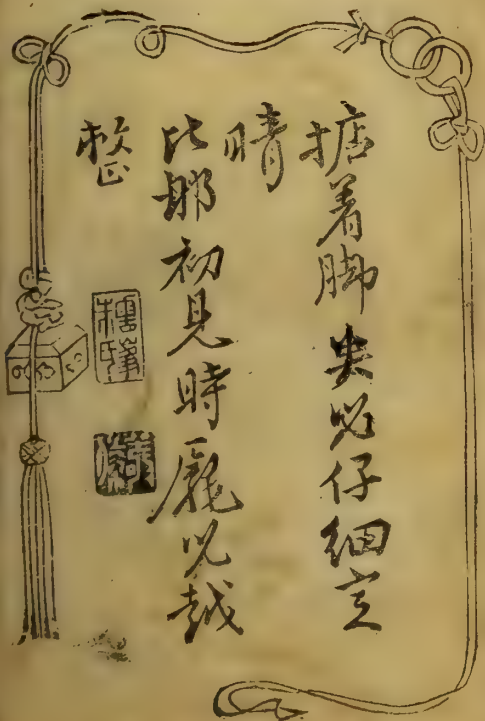 掂着脚尖兒仔細定
睛
比那初見時龐兒越
整